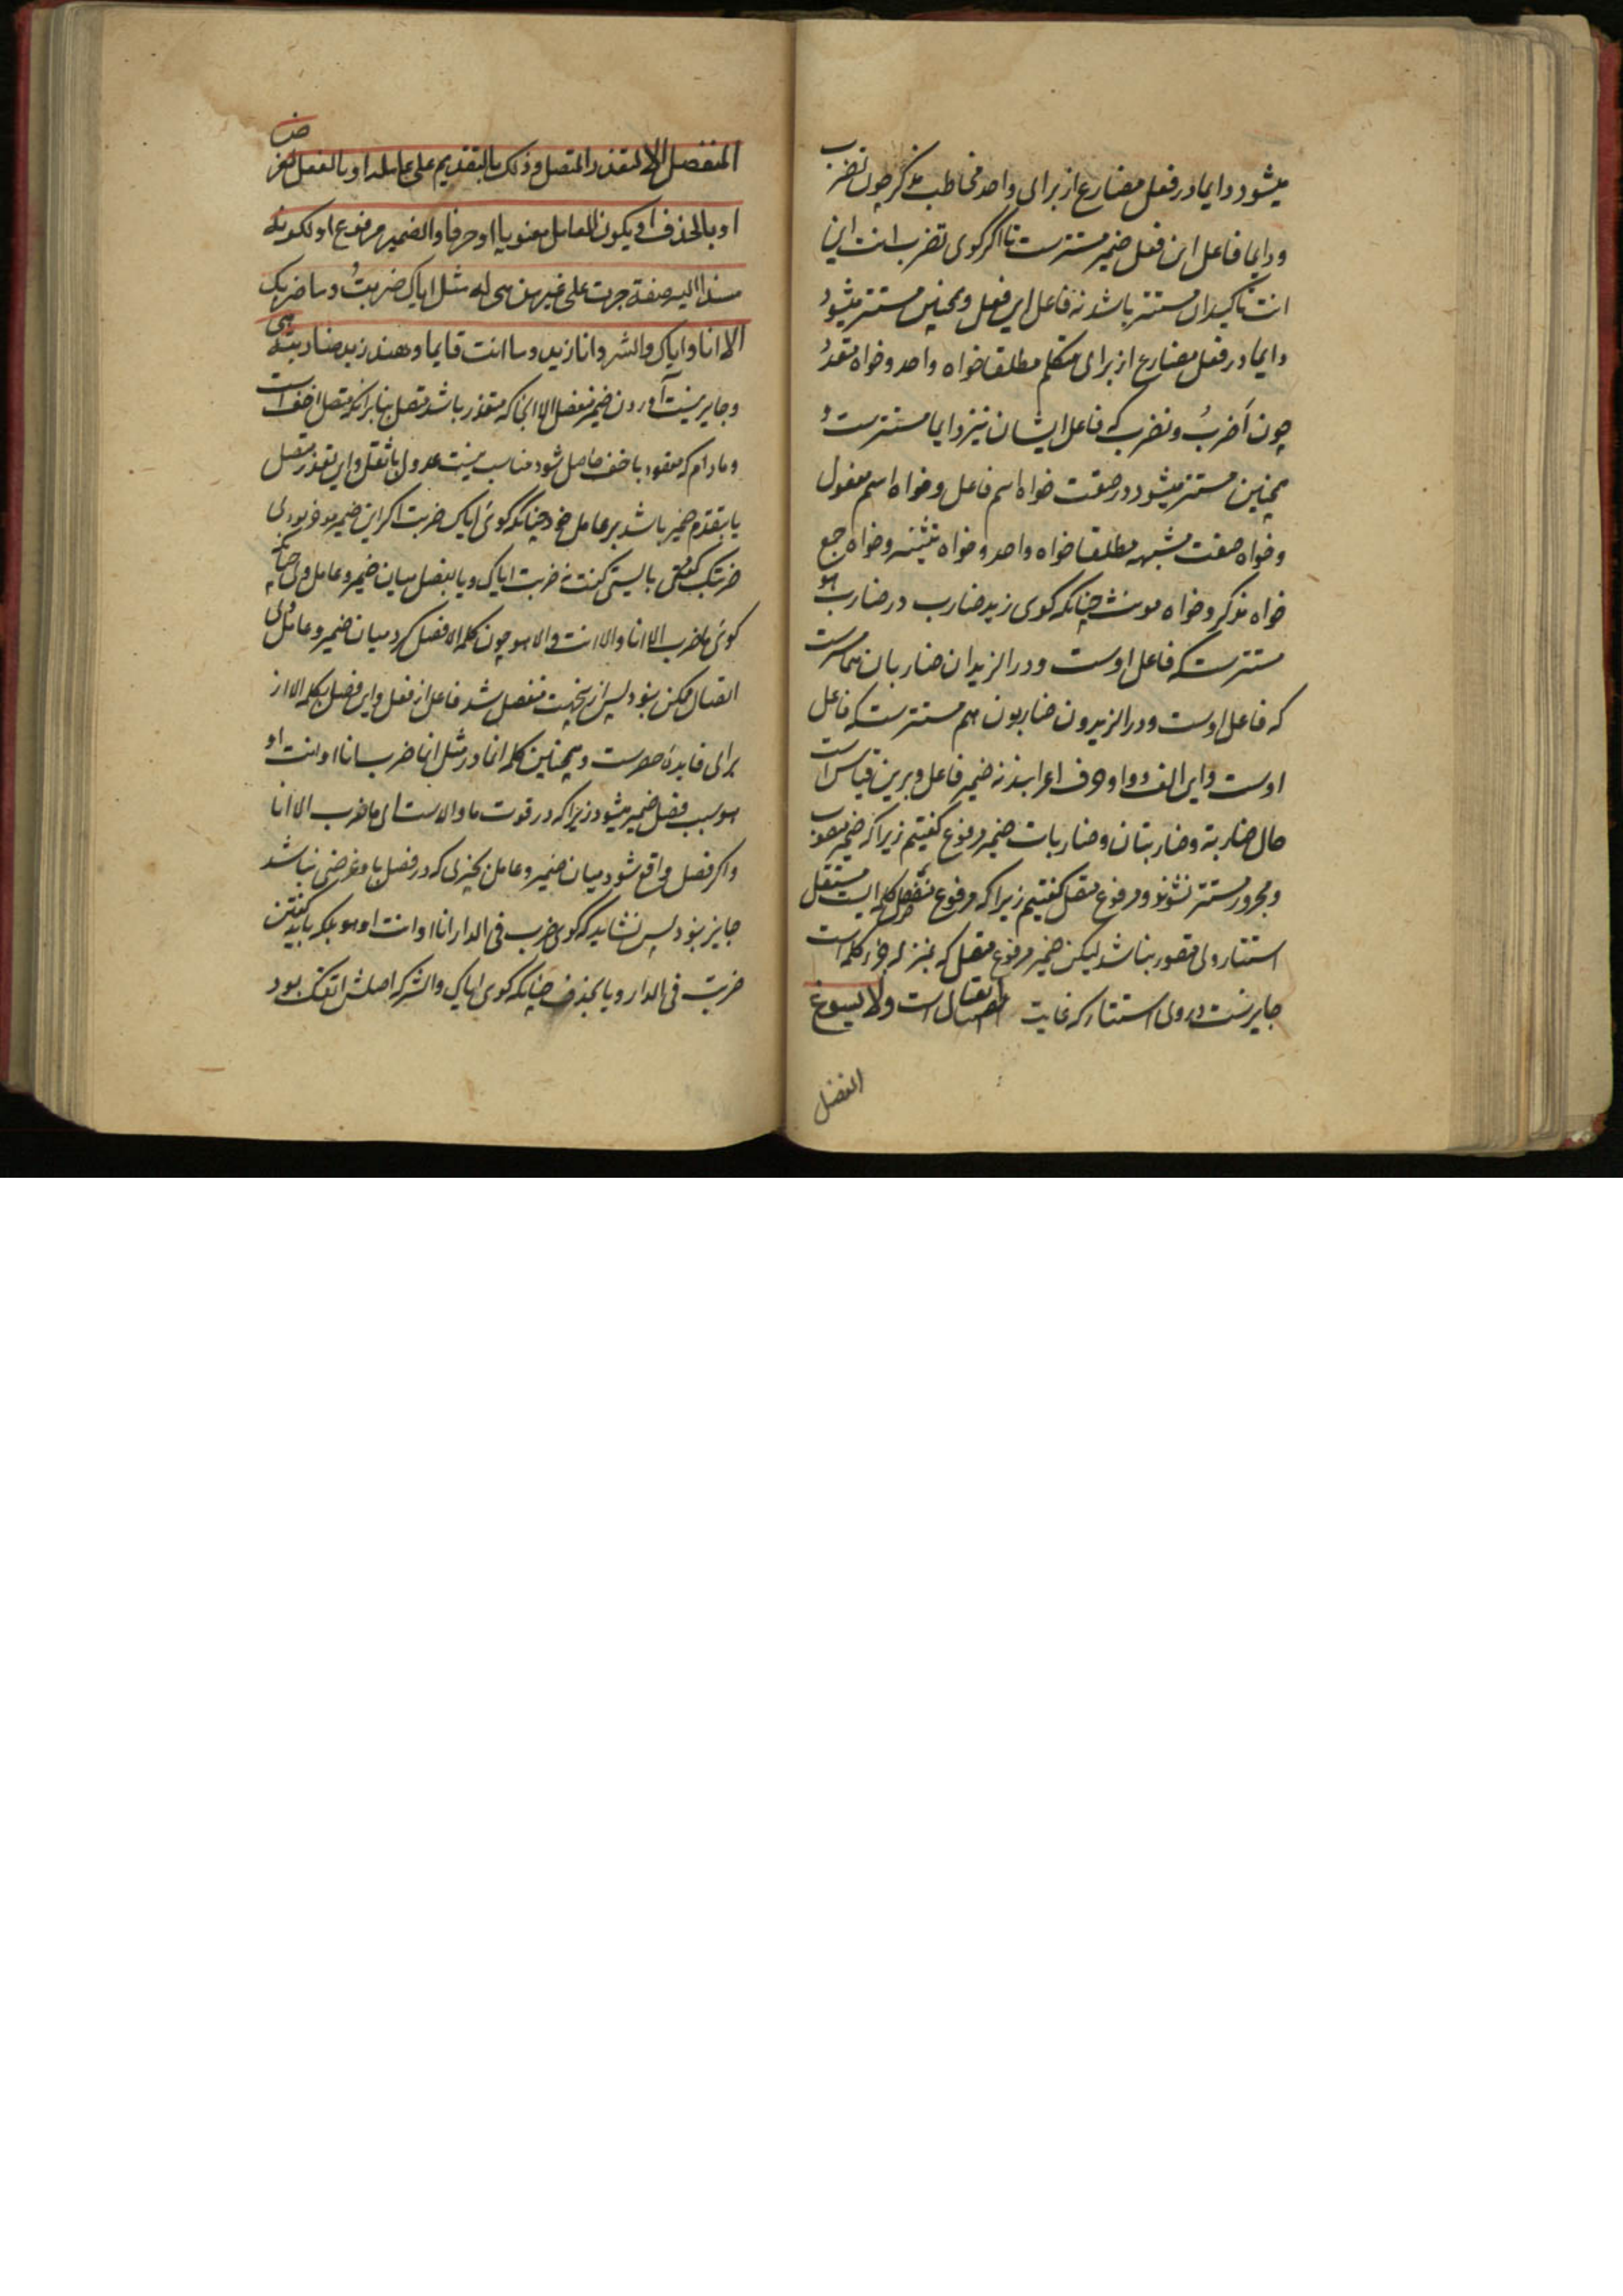 میشود دایما در فعل مضارع از برای واحد مخاطب مذکر چون تضرب
و دایما فاعل این فعل ضمیر مستترست تا اگر کوی تضرب انت این
انت تاکید ان مستتر باشد نه فاعل این فعل و همچنین مستتر میشود
دایما در فعل مضارع از برای متکلم مطلقا خواه واحد و خواه متعدد
چون اَضربُ و نضرب که فاعل ایشان نیز دایما مستترست و
همچنین مستتر میشود در صفت خواه اسم فاعل و خواه اسم مفعول
و خواه صفت مشبهه مطلقا خواه واحد و خواه تثنیه و خواه جمع
خواه مذکر و خواه مونث چنانکه کوی زید ضارب در ضارب هو
مستترست که فاعل اوست و در الزیدان ضاربان هما مسترست
که فاعل اوست و در الزیدون ضاربون هم مستترست که فاعل
اوست و این الف و واو حرف اعرابند نه ضمیر فاعل و برین قیاس است
حال ضاربة و ضاربتان و ضاربات ضمیر مرفوع کفتیم زیرا که ضمیر منصوب
و مجرور مستتر نشوند و مرفوع متصل کفتیم زیرا که مرفوع منفصل کلمه ایست مستقل
استتار ولی متصور نباشد لیکن ضمیر مرفوع متصل که بمنزله جزء کلمه است
جایزست در ولی استتار که غایت اتصال است ولا یسوغ
المنفصل
المنفصل الا لتعذر المتصل وذلک بالتقدیم علی عامله او بالفصل لغرض
او بالحذف او یکون العامل معنویا او حرفا والضمیر مرفوع او لکونه
مسندا الیه صفة جرت علی غیر من هی له مثل ایاک ضربتُ وما ضربک
الا انا وایاک والشر وانا زید وما انت قایما وهند زید ضاربته هی
و جایز نیست آوردن ضمیر منفصل الا انجا که متعذر باشد متصل بنابرانکه متصل اخف است
و مادام که مقصود باخف حاصل شود مناسب نیست عدول باثقل و این تعذر متصل
یا بتقدم ضمیر باشد بر عامل خود چنانکه کوئ ایاک ضربت اکر این ضمیر موخر بودی
ضربتک بایستی کفت نه ضربت ایاک و یا بفصل میان ضمیر و عامل وی چنانکه
کوئ ما ضرب الا انا و الا انت و الا هو چون کلمه الا فصل کرد میان ضمیر و عامل وی
اتصال ممکن نبود پس ازین جهت منفصل شد فاعل از فعل و این فصل بکلمه الا از
برای فایدهٔ حصرست و همچنین کلمه انما در مثل انما ضرب انا او انت او
هو سبب فصل ضمیر میشود زیرا که در قوت ما و الاست ای ما ضرب الا انا
و اکر فصل واقع شود میان ضمیر و عامل بچیزی که در فصل با و غرضی نباشد
جایز نبود پس نشاید که کوی ضرب فی الدار انا او انت او هو بلکه باید کفتن
ضربت فی الدار و یا بحذف چنانکه کوی ایاک والشر که اصلش اتقک بود